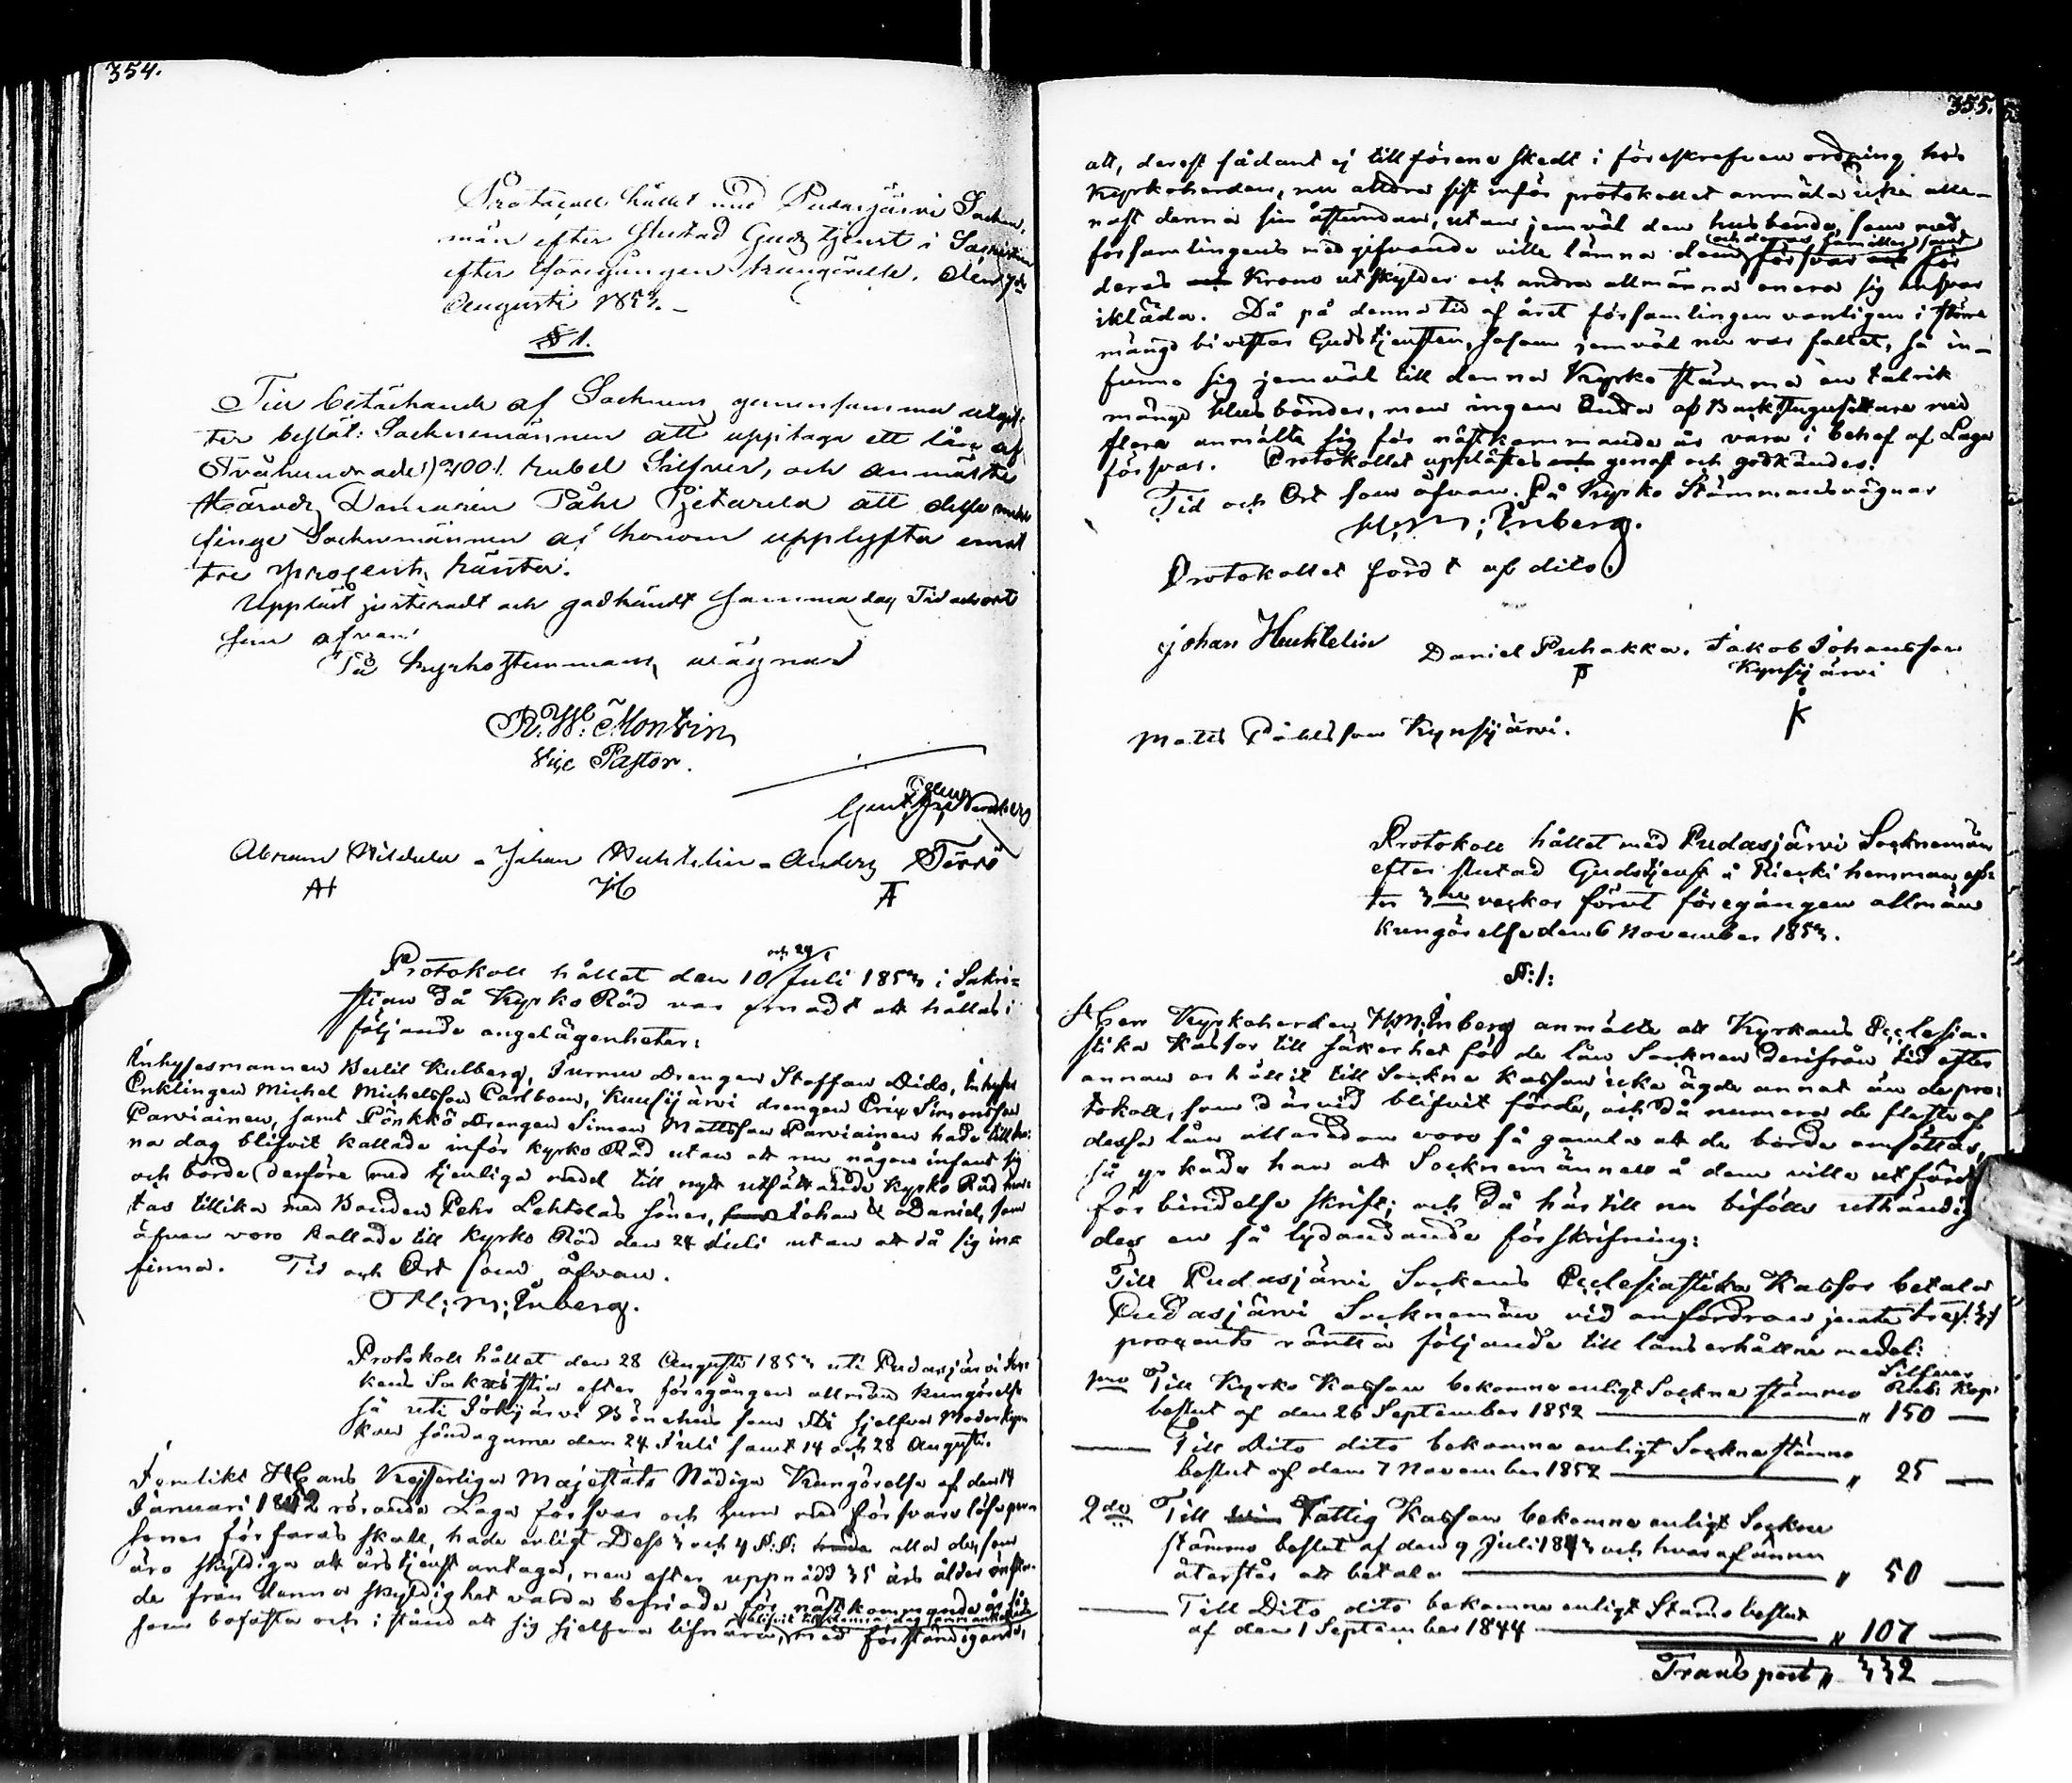 354.
Protocoll hållet med Pudasjärvi Sockne-
män efter slutad Gudstjenst i Sacristian
efter föregången kungörelse. den 7de
Augusti 1853.
§ 1.
Till betäckande af Socknens gemensamma utgif-
ter beslöt: Socknemännen att upptaga ett lån af
Tvåhundrade /200/ rubel Silfver, och anmälte
Härads Domaren Påhl Pjetarila att desse medel
finge Socknemännen af honom upplyfta emot
tre procents ränta.
Uppläst justeradt och godkändt samma dag Tid och ort
som ofvan.
På Kyrkostemmans vägnar
R. W. Montin
Vice Pastor.
Abram Niskala - Johan Huhtelin - Anders Törrö
AH H AT
Protokoll hållet den 10 och 24/ Juli 1853 i Sakri-
stian då Kyrko Råd var ernadt att hållas i
följande angelägenheter:
Inhysesmannen Bertil Kulberg, Jurmu Drengen Staffan Dido, Inhyses
Enklingen Michel Michelsson Carlbom, Kuusijärvi drengen Eric Simonsson
Parviainen, samt Pönkkö drengen Simon Mattsson Parviainen hade till den-
na dag blifvit kallade inför kyrko Råd utan att nu någon infant sig
och borde derföre med tjenliga medel till nytt utsättande Kyrko Råd hem-
tas tillika med Bonden Pehr Lehtolas söner, Johan & Daniel, som
äfven voro kallade till Kyrko Råd den 24 Juli utan att då sig in-
finna. Tid och Ort som ofvan.
H: M: Enberg.
Protokoll hållet den 28 Augusti 1853 uti Pudasjärvi Soc-
kens Sakristia efter föregången allmän kungörelse
så uti Jokijärvi Bönehus som uti sjelfva Moderkyr-
kan söndagarne den 24 Juli samt 14 och 28 Augusti.
Jemlikt Hans Kejserliga Majestäts Nådiga Kungörelse af den 14
Januari 1852 rörande Laga försvar och huru med försvarslösa per-
soner förfaras skall, hade enligt Dess 3 och 4 §.§: alla de, som
äro skyldiga att årstjenst antaga, men efter uppnådd 35 års ålder önska
de från denna skyldighet varda befriade för nästkommande år så
som bofasta och i stånd att sig sjelfva lifnära, blifvit till denna dag sammankallade med förständigande,
355.
att, derest sådant ej tillförene skedt i föreskrefven ordning hos
Kyrkoherden, nu alldra sist inför protokollet anmäla icke alle-
nast denna sin åstundan, utan jemväl den husbonde, som med
församlingens medgifvande ville lämna dem och deras familier försvar samt för
deras Krono utskylder och andra allmänna onera sig ansvar
ikläda. Då på denna tid af året församlingen vanligen i större
mängd bivistar Gudstjensten, såsom jemväl nu var fallet, så in-
funno sig jemväl till denna Kyrko stämma en talrik
mängd Husbönder, men ingen enda af Back Inhysittare med
flera anmälte sig för nästkommande år vara i behof af Laga
försvar. Protokollet upplästes genast och godkändes.
Tid och Ort som ofvan. På Kyrko Stämmans vägnar
H: M: Enberg.
Protokollet fördt af dito
Johan Huhtelin Daniel Puhakka. Jakob Johansson
Kynsijärvi
P K
Matts Påhlsson Kynsijärvi.
Protokoll hållet med Pudasjärvi Socknemän
efter slutad Gudstjenst å Riekki hemman, ef-
ter 3ne veckor förut föregången allmän
kungörelse den 6 November 1853.
§:1:
Herr Kyrkoherden H:M:Enberg anmälte att Kyrkans Ecclesia-
stika Kassor till säkerhet för de lån Socknen derifrån tid efter
annan erhållit till Sockne Kassan icke ägde annat än de pro-
tokoll, som därvid blifvit förde, och då numera de fleste af
dessa lån allaredan voro så gamla att de borde omsättas,
så yrkade han att Socknemännen å dem ville utförda
förbindelse skrift; och då härtill nu biföllo uthändig
des en så lydandande förskrifning:
Till Pudasjärvi Sockens Ecclesiastika Kassor betala
Pudasjärvi Socknemän vid anfordran jemte tre /:3:/
procents ränta följande till låns erhållne medel:
Silfver
1mo Till Kyrko Kassan bekomne enligt Sockne stämmo Rub: Kop:
beslut af den 26 September 1852 — " 150 —
— Till Dito dito bekomne enligt Sockne stämmo
beslut af den 7 November 1852 — " 25 —
2do Till Fattig Kassan bekomne enligt Sockne
stämmo beslut af den 9 Juli 1843 och hvaraf ännu
återstår att betala — " 50 —
— Till Dito dito bekomne enligt Stämo beslut
af den 1 September 1844 — " 107 —
Transport " 332 —